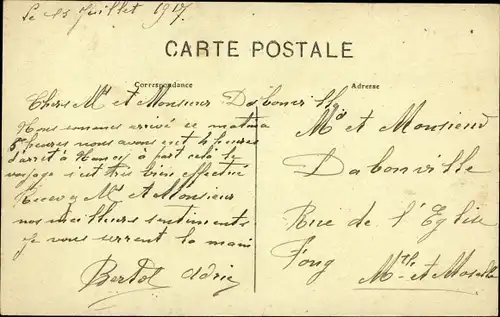 Le 15 Juillet 1917
CARTE POSTALE
Correspondance
Adresse
Chers Me et Monsieur Dabonville
Nous sommes arrivé ce matin a
5 heures nous avons eut 4 heures
d'arret à Nancy à part cela le
voyage s'est très bien effectué
Recevez Me et Monsieur
nos meilleurs sentiments
Je vous serrent la main
Bertol Adrien
Me et Monsieur
Dabonville
Rue de l'Eglise
Foug
Mthe et Moselle